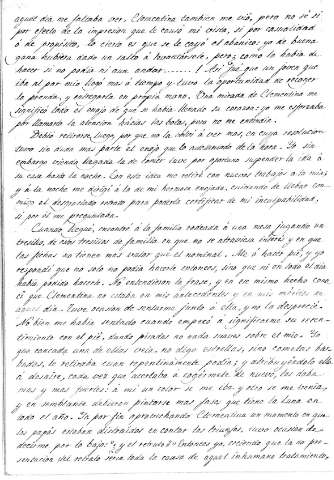 aquel dia me faltaba ver. Clementina tambien me vió, pero no sé si
por efecto de la impresion que le causó mi vista, si por casualidad
ó de propósito, lo cierto es que se le cayó el abanico: yo de buena
gana hubiera dado un salto á levantárselo, pero; como la habia de
hacer si no podia ni aun andar......! Así fué que un joven que
iba el por mio llegó en á tiempo y tuvo la oportunidad de recoger
la prenda, y entregarla en propia mano. Una mirada de Clementina me
significó todo el enojo de que se habia llenado su corazon: yo me esforzaba
por llamarle la atencion hácia las botas, pero no me entendia.
Debió retirarse luego, por que no la volví á ver mas, en cuya resolucion
tuvo sin duda mas parte el enojo que lo avanzado de la hora. Yo sin
embargo creia llegada la de tener por oportuno suspender la ida á
su casa hasta la noche. Con esta idea me retiré con nuevos trabajos á la mia
y á la noche me dirigí á la de mi hermosa enojada, cuidando de llevar con-
migo el despreciado retrato para poderla certificar de mi inculpabilidad,
si por él me preguntaba.
Cuando llegué, encontré á la familia rodeada á una mesa jugando un
tresillo, de esos tresillos de familia en que no se atraviesa interés y en que
las fichas no tienen mas valor que el nominal. Me á hacer pié, y yo
respondí que no solo no podia hacerlo entonces, sino que ni en todo el dia
habia podido hacerlo. No entendieron la frase, y yo en mismo hecho cono-
cí que Clementina no estaba en mis antecedentes y en mis
aquel dia. Tuve ocasion de sentarme junto á ella, y no la desprecié.
No bien me habia sentado cuando empezó á significarme su resen-
timiento con el pié, dando pisadas no nada suaves sobre el mio. Yo
que con cada una de ellas veia, no digo estrellas, sino cometas bar-
bados, le retiraba cuan repentinamente podia; y atribuyéndolo ella
á desaire, cada vez que acertaba á cogérmele de nuevo, las daba
mas y mas fuertes: á mi un color se me iba y otro se me venia,
y en semblante debieron pintarse mas fases que tiene la luna en
todo el año. Ya por fin aprovechando Clementina un momento en que
los papás estaban distraidos en contar los triunfos, tuvo ocasion de
decirme por lo bajo: "¿y el retrato?" Entonces yo, creyendo que la no pre-
sentacion del retrato seria toda la causa de aquel inhumano tratamiento,